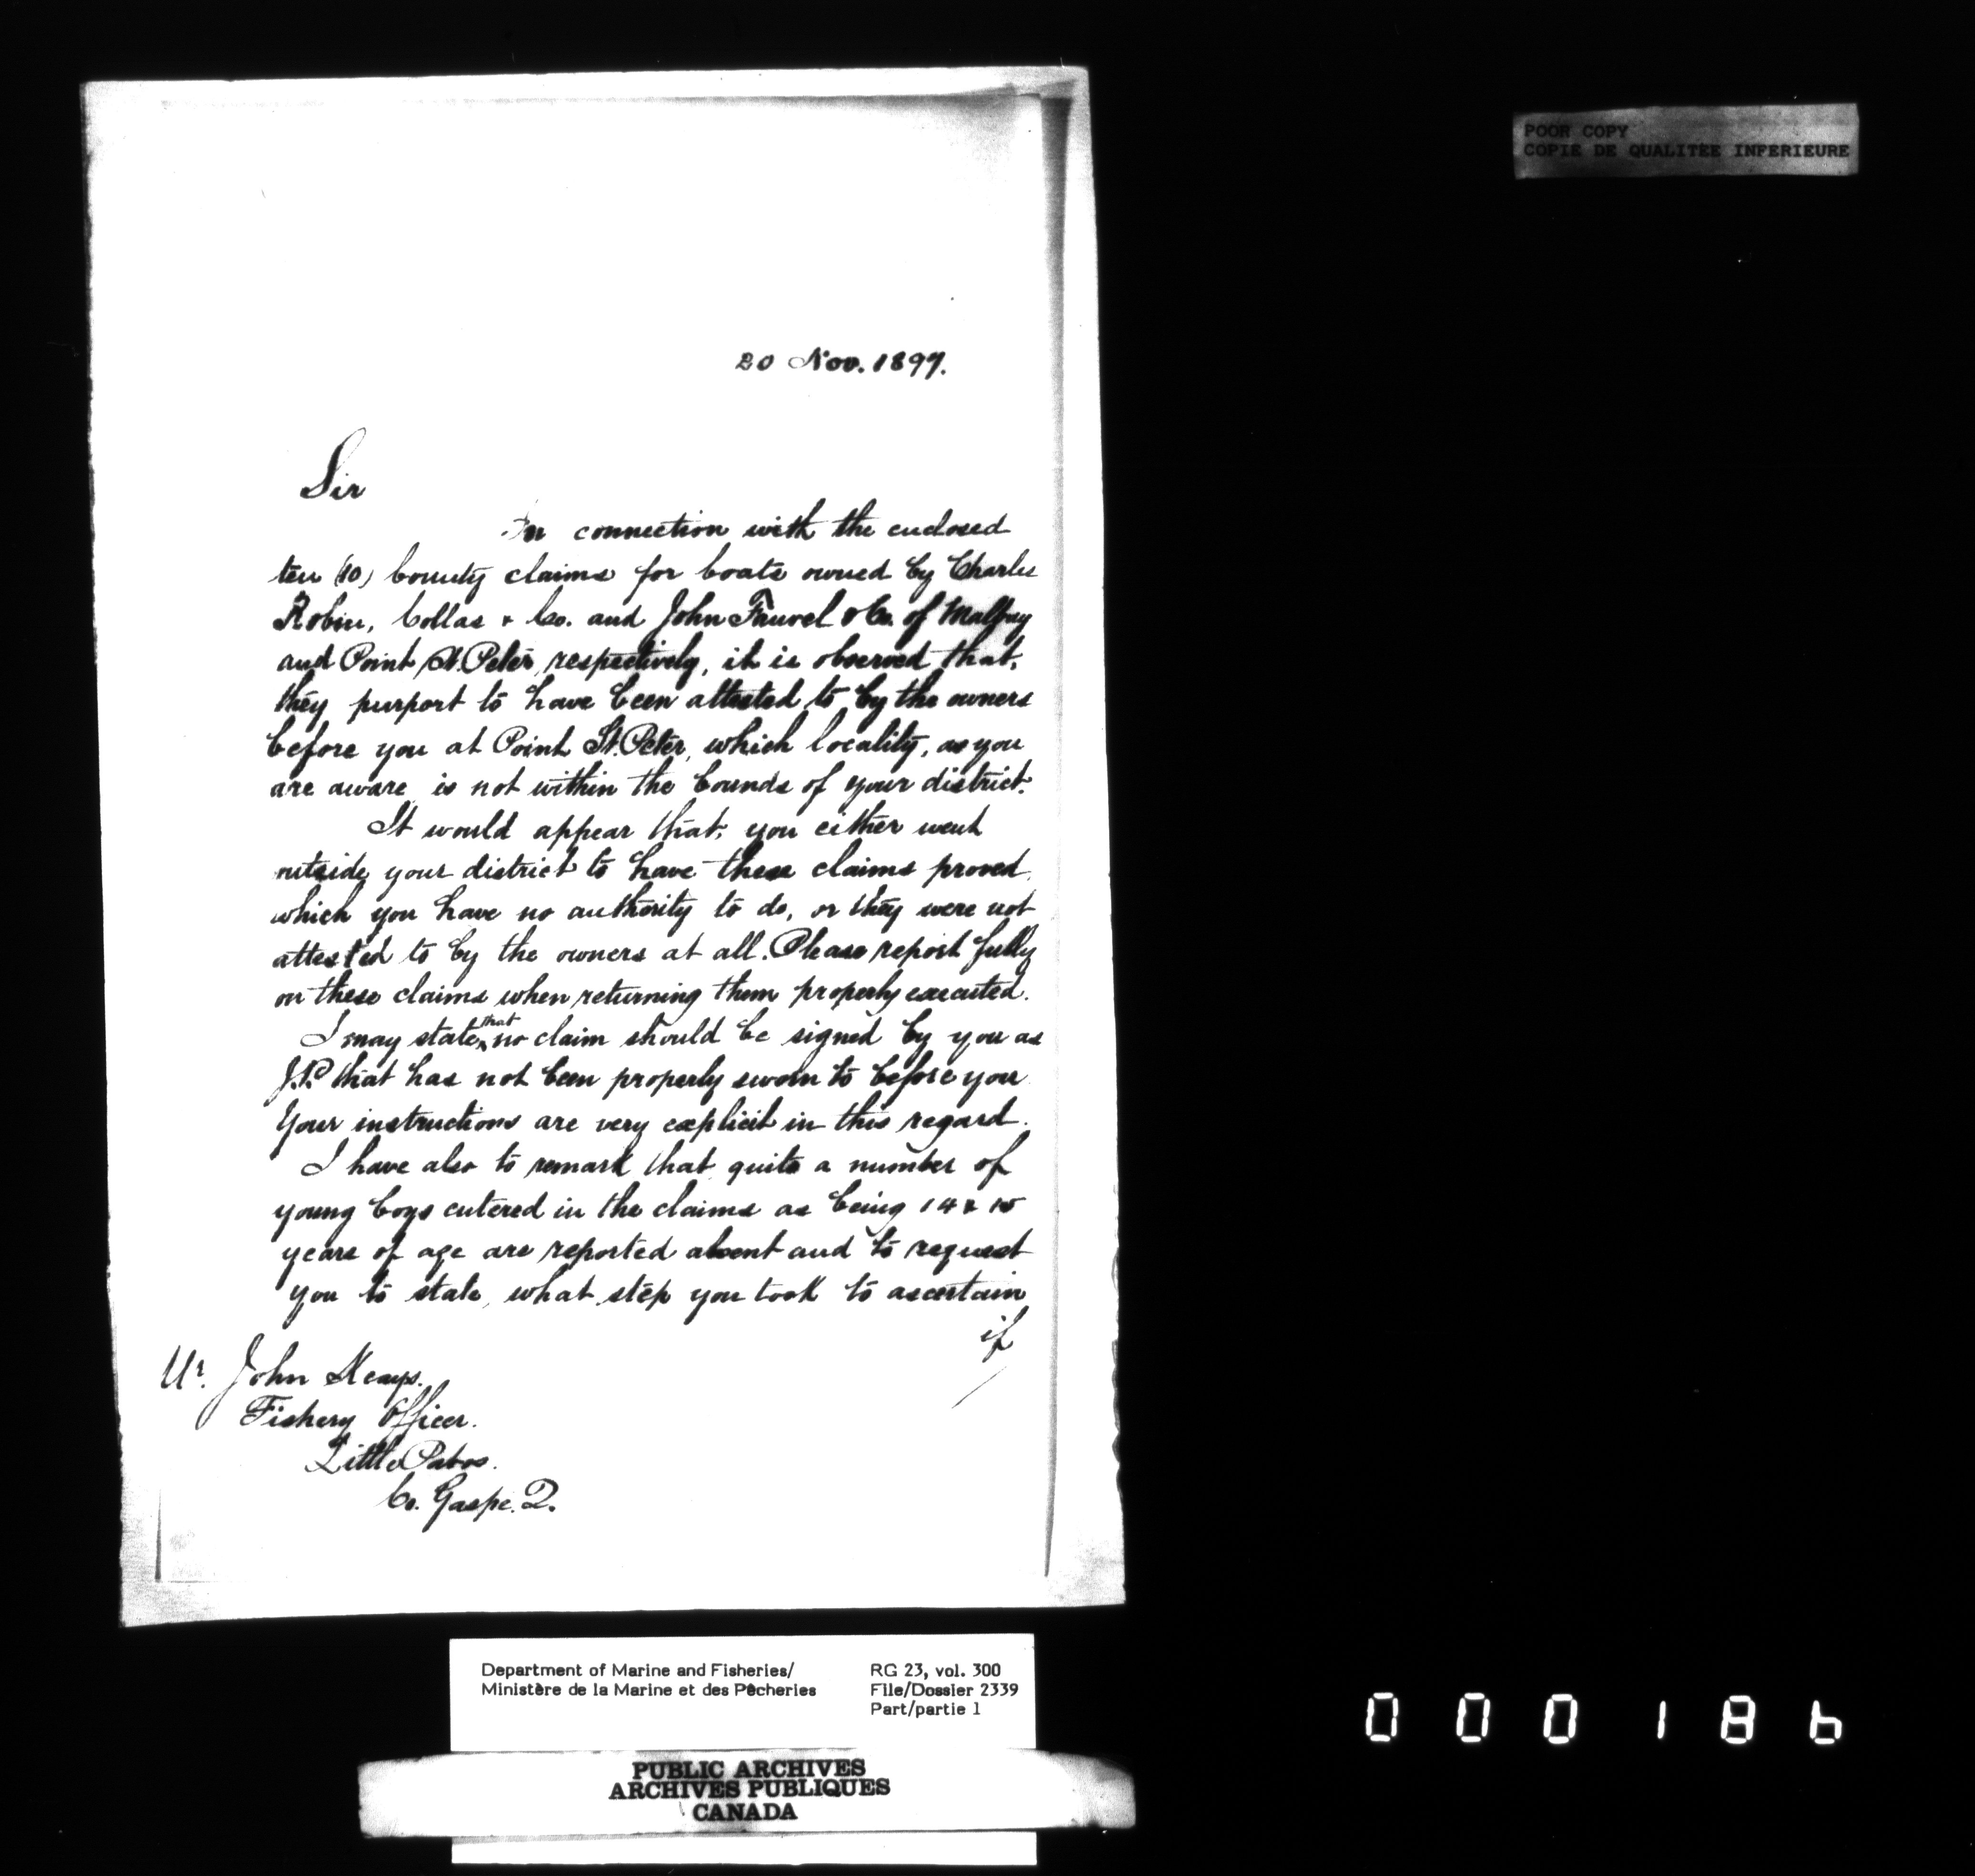 POOR COPY
COPIE DE QUALITEE INFERIEURE
20 Nov. 1897.
Sir
In connection with the enclosed
ten (10) bounty claims for boats owned by Charles
Robin, Collas & Co. and John Fauvel & Co. of Malbay
and Point St. Peter, respectively, it is observed that,
they purport to have been attested to by the owners
before you at Point St. Peter, which locality, as you
are aware, is not within the bounds of your district.
It would appear that, you either went
outside your district to have these claims proved,
which you have no authority to do, or they were not
attested to by the owners at all. Please report fully
on these claims when returning them properly executed.
I may state that no claim should be signed by you as
J.P. that has not been properly sworn to before you.
Your instructions are very explicit in this regard.
I have also to remark that quite a number of
young boys entered in the claims as being 14 & 15
years of age are reported absent and to request
you to state, what step you took to ascertain
if
Mr. John Keays.
Fishery Officer.
Little Pabos.
Co. Gaspe. Q.
Department of Marine and Fisheries/
Ministère de la Marine et des Pêcheries
RG 23, vol. 300
File/Dossier 2339
Part/partie 1
PUBLIC ARCHIVES
ARCHIVES PUBLIQUES
CANADA
000186